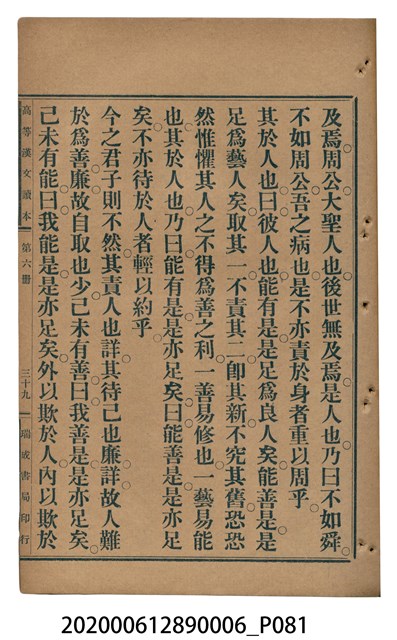 及焉周公大聖人也後世無及焉是人也乃曰不如舜
不如周公吾之病也是不亦責於身者重以周乎
其於人也曰彼人也能有是是足爲良人矣能善是是
足爲藝人矣取其一不責其二卽其新不究其舊恐恐
然惟懼其人之不得爲善之利一善易修也一藝易能
也其於人也乃曰能有是是亦足矣曰能善是是亦足
矣不亦待於人者輕以約乎
今之君子則不然其責人也詳其待己也廉詳故人難
於爲善廉故自取也少己未有善曰我善是是亦足矣
己未有能曰我能是是亦足矣外以欺於人內以欺於
高等漢文讀本 第六冊 三十九 瑞成書局印行
202000612890006_P081